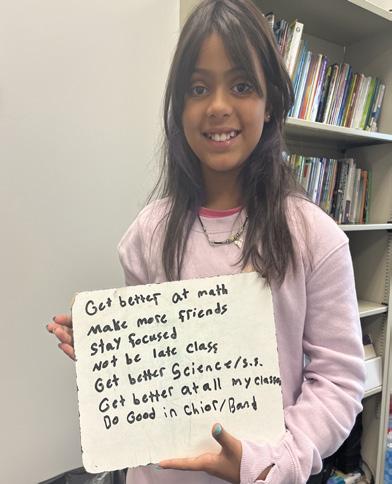 Get better at math
Make more friends
Stay focused
Not be late class
Get better Science/s.s.
Get better at all my classes
Do Good in Chior/Band